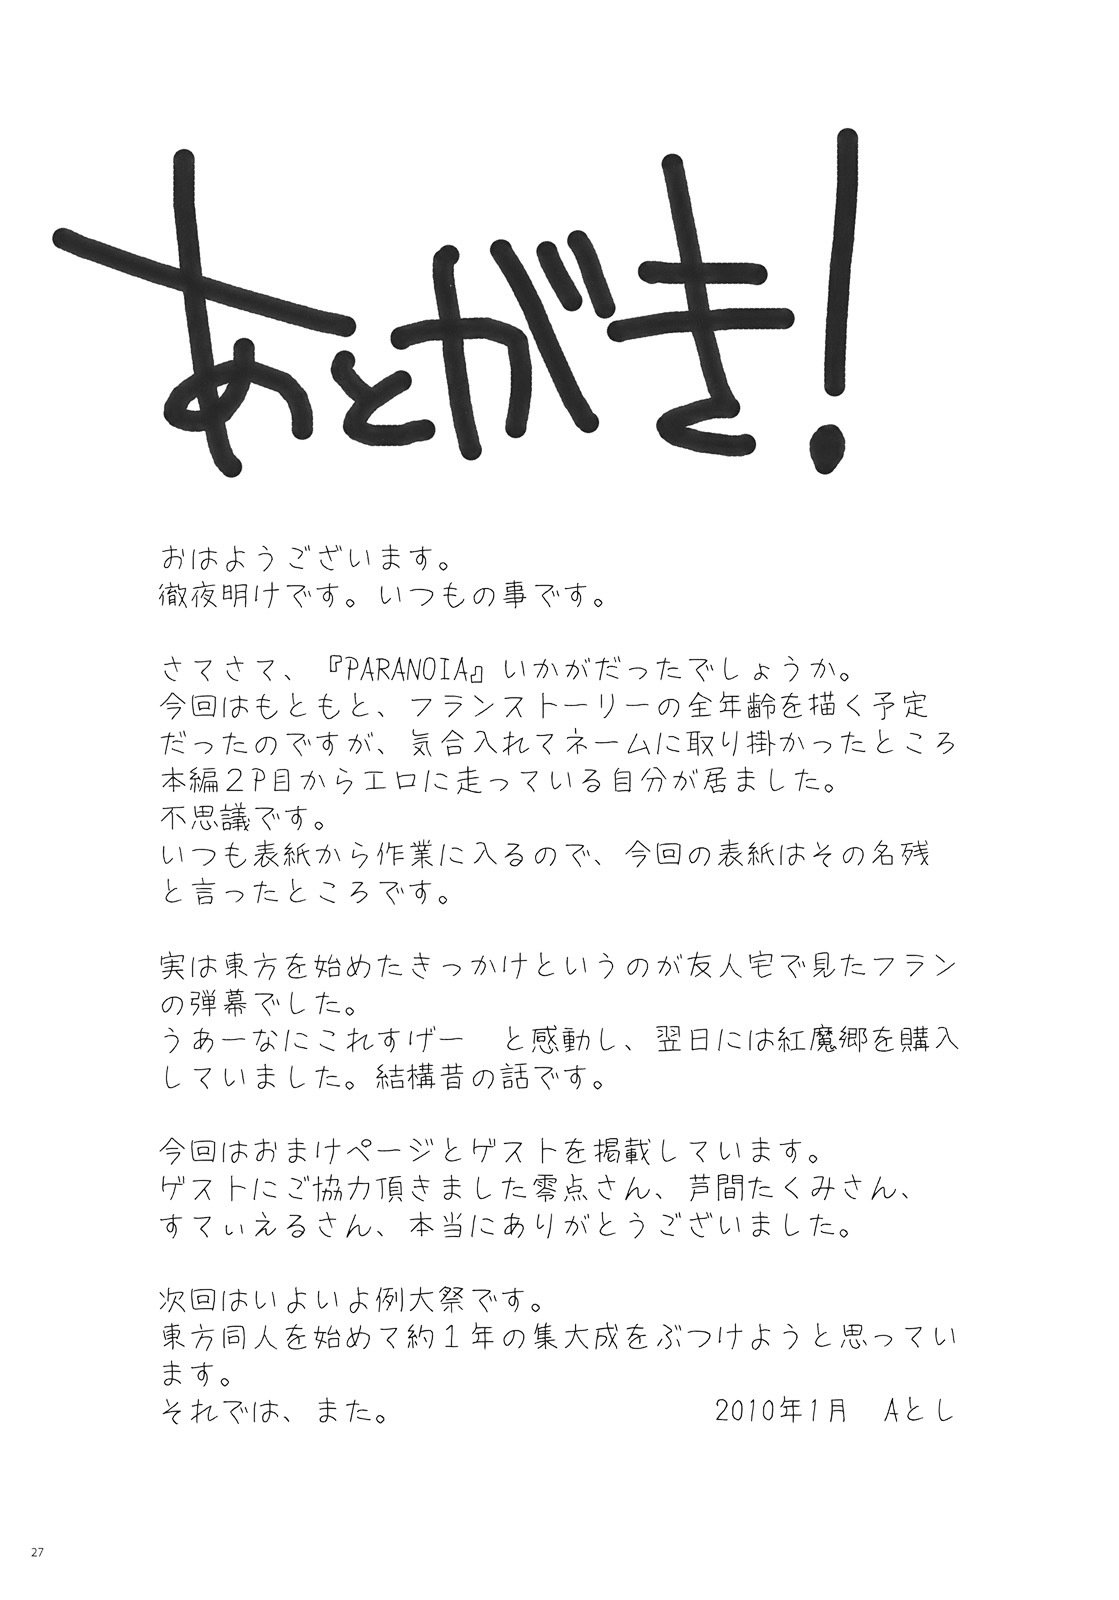 あとがき!
おはようございます。
徹夜明けです。いつもの事です。
さてさて、『PARANOIA』いかがだったでしょうか。
今回はもともと、フランストーリーの全年齢を描く予定
だったのですが、気合入れてネームに取り掛かったところ
本編２P目からエロに走っている自分が居ました。
不思議です。
いつも表紙から作業に入るので、今回の表紙はその名残
と言ったところです。
実は東方を始めたきっかけというのが友人宅で見たフラン
の弾幕でした。
うあーなにこれすげー　と感動し、翌日には紅魔郷を購入
していました。結構昔の話です。
今回はおまけページとゲストを掲載しています。
ゲストにご協力頂きました零点さん、芦間たくみさん、
すてぃえるさん、本当にありがとうございました。
次回はいよいよ例大祭です。
東方同人を始めて約１年の集大成をぶつけようと思ってい
ます。
それでは、また。　2010年1月　Aとし
27